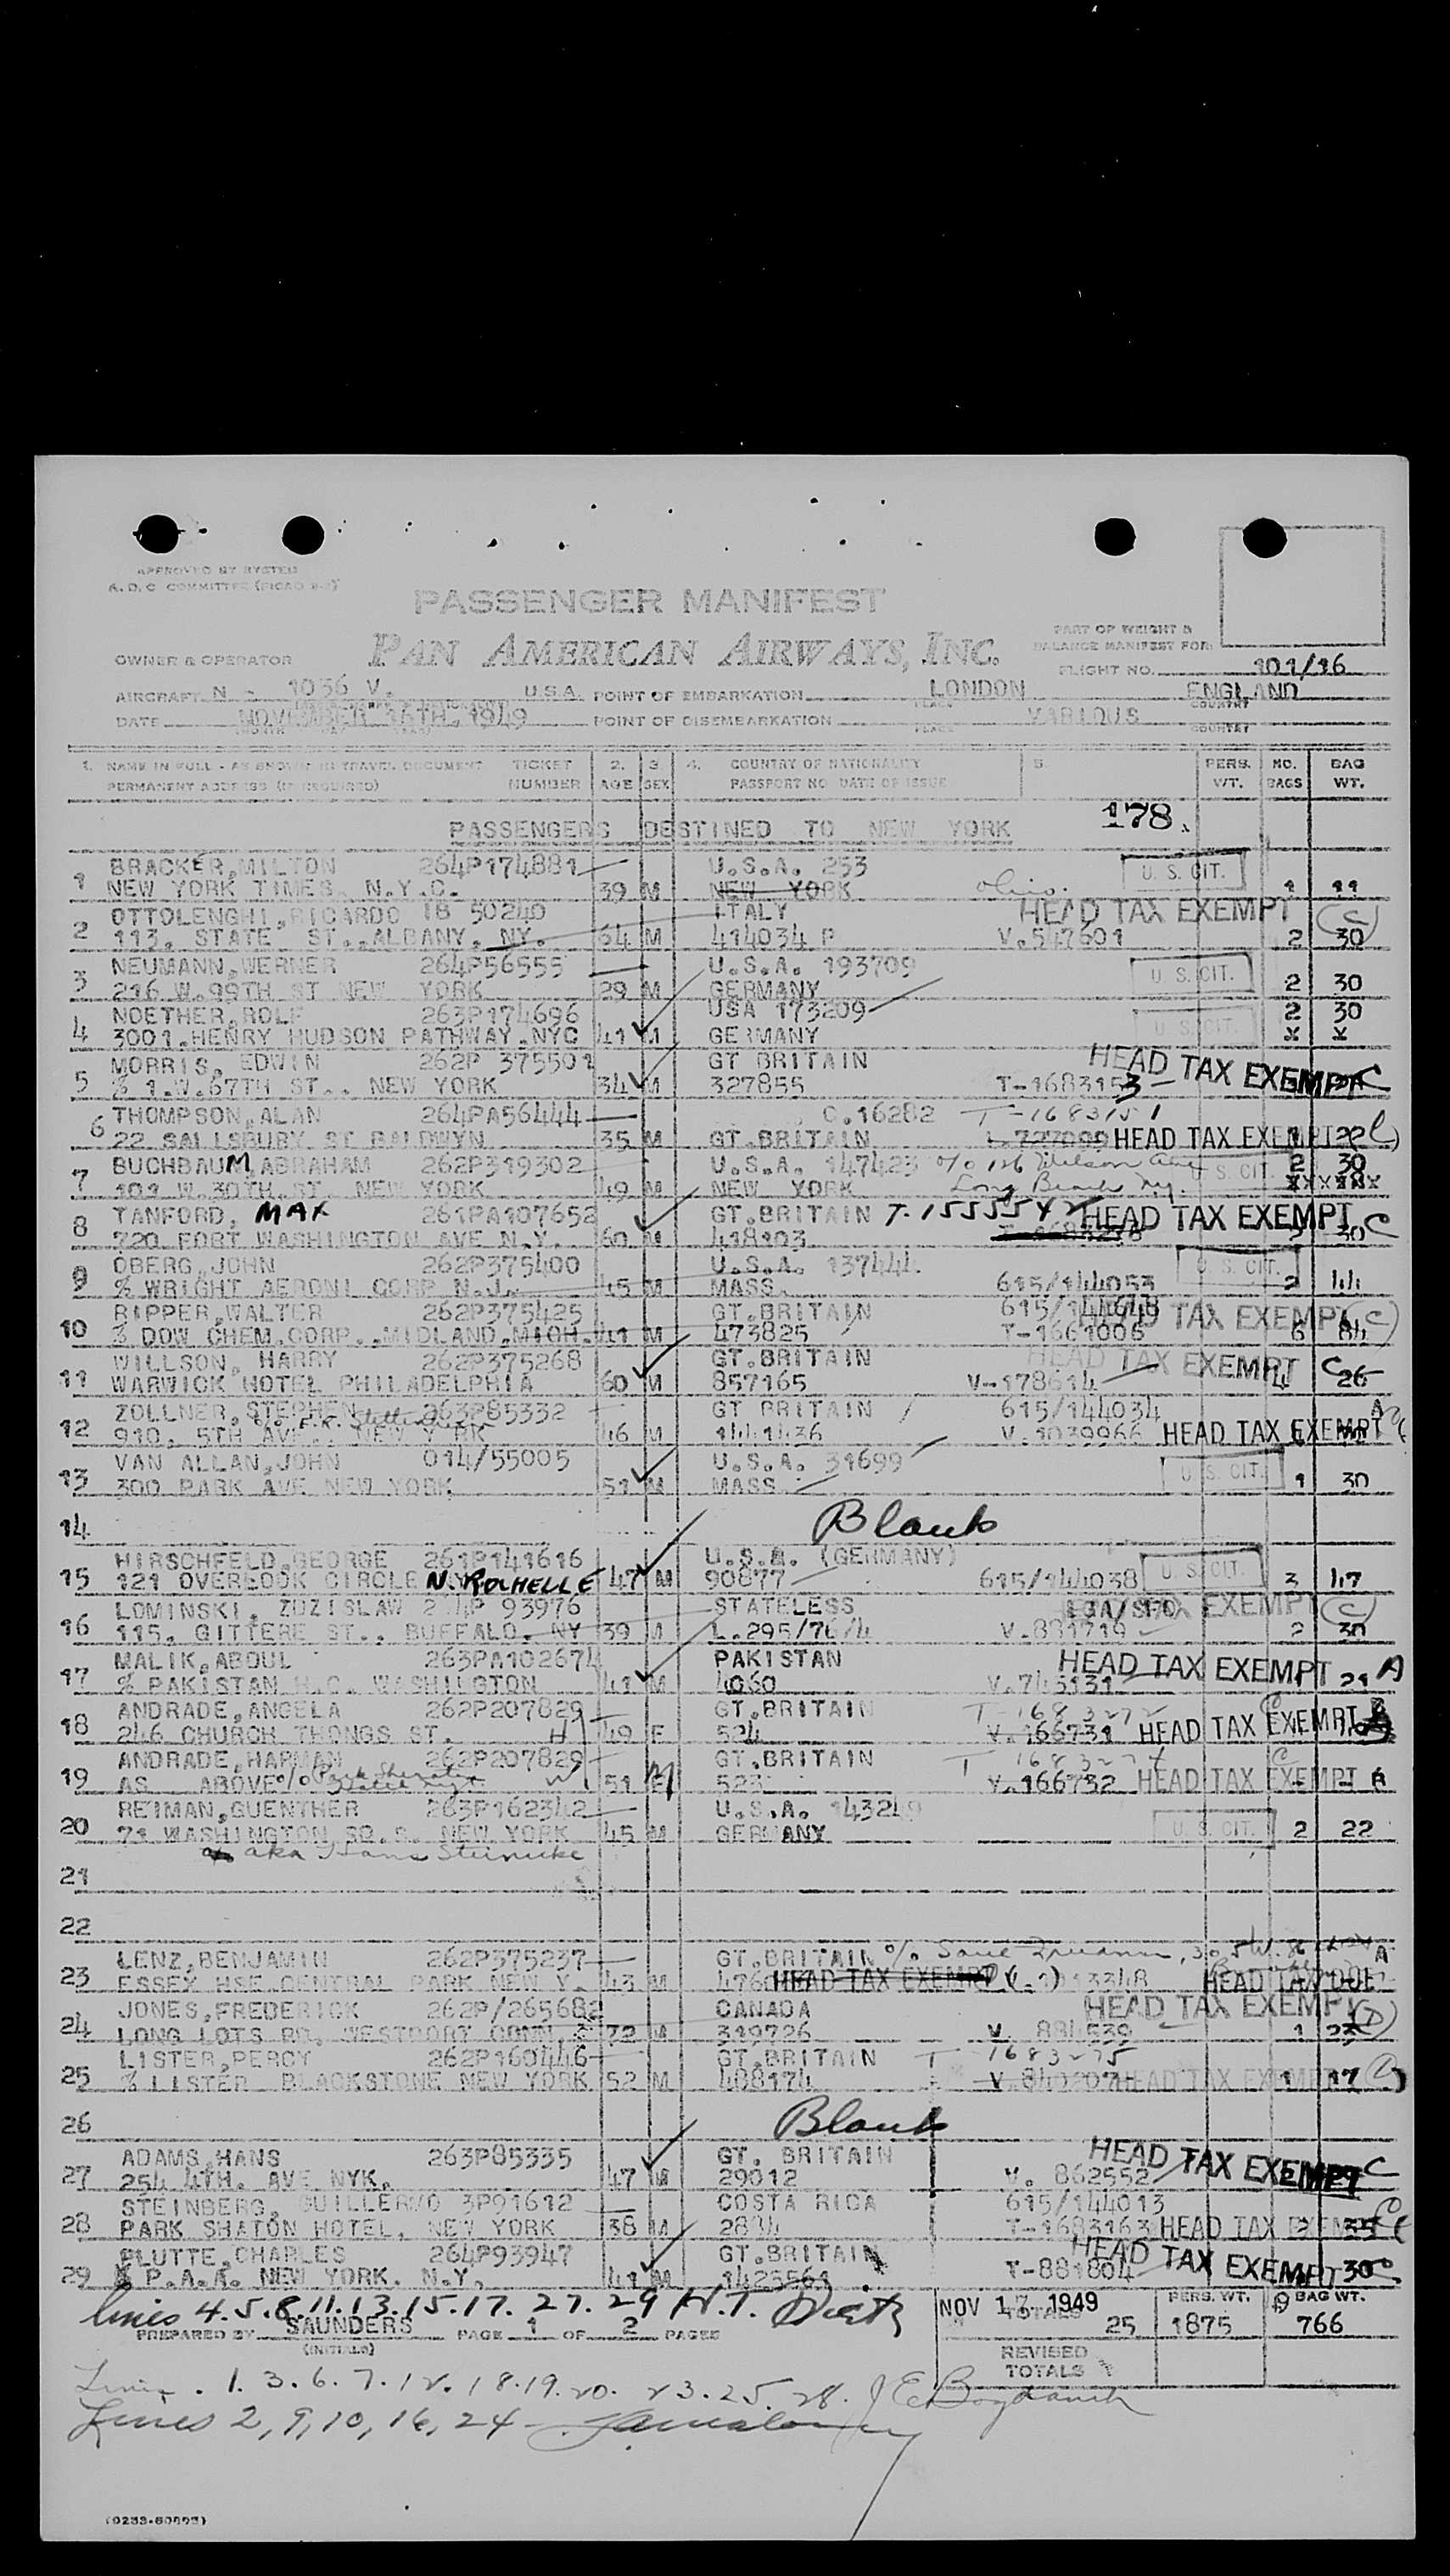 APPROVED BY SYSTEM
A.D.C COMMITTEE
PASSENGER MANIFEST
PAN AMERICAN AIRWAYS, INC.
PART OF WEIGHT &
BALANCE MANIFEST FOR:
OWNER & OPERATOR
FLIGHT NO. 101/16
AIRCRAFT N - 1036 V. U.S.A. POINT OF EMBARKATION LONDON ENGLAND
PLACE COUNTRY
DATE NOVEMBER 16TH, 1949 POINT OF DISEMBARKATION VARIOUS
PLACE COUNTRY
1. NAME IN FULL - AS SHOWN IN TRAVEL DOCUMENT TICKET 2. 3 4. COUNTRY OF NATIONALITY 5. PERS. NO. BAG
PERMANENT ADDRESS (IF REQUIRED) NUMBER AGE SEX PASSPORT NO DATE OF ISSUE WT. BAGS WT.
178.
PASSENGERS DESTINED TO NEW YORK
BRACKER, MILTON 264P174881 U.S.A. 253 U. S. CIT.
1 NEW YORK TIMES N.Y.C. 39 M NEW YORK Ohio. 1 11
OTTOLENGHI, RICARDO IB 50240 ITALY HEAD TAX EXEMPT (C)
2 113. STATE ST., ALBANY. NY. 64 M 414034 P V.547601 2 30
NEUMANN, WERNER 264P56555 U.S.A. 193709 U. S. CIT.
3 216 W.99TH ST NEW YORK 29 M GERMANY 2 30
NOETHER, ROLF 263P174696 USA 173209 2 30
4 3001.HENRY HUDSON PATHWAY.NYC 41 M GERMANY U. S. CIT. X X
MORRIS, EDWIN 262P 375501 GT BRITAIN HEAD TAX EXEMPT C
5 % 1.W.67TH ST.. NEW YORK 34 M 327855 T-1683153
THOMPSON, ALAN 264PA56444 C.16282 T-1683151
6 22 SALISBURY ST BALDWYN 35 M GT.BRITAIN HEAD TAX EXEMPT 22
BUCHBAUM, ABRAHAM 262P319302 U.S.A. 147423 c/o 126 Wilson Ave 2 30
7 101 W.30TH.ST. NEW YORK 49 M NEW YORK Long Beach N.Y. U. S. CIT. XXXXXX
TANFORD, MAX 261PA107652 GT.BRITAIN T-1555542 HEAD TAX EXEMPT C
8 720 FORT WASHINGTON AVE N.Y. 60 M 418103 30
OBERG, JOHN 262P375400 U.S.A. 137444. U. S. CIT.
9 % WRIGHT AERONI CORP N.J. 45 M MASS. 615/144053 2 44
RIPPER, WALTER 262P375425 GT.BRITAIN HEAD TAX EXEMPT C)
10 % DOW CHEM.CORP., MIDLAND, MICH. 41 M 473825 T-1661006 6 84
WILLSON, HARRY 262P375268 GT.BRITAIN HEAD TAX EXEMPT C
11 WARWICK HOTEL PHILADELPHIA 60 M 857165 V-178614 4 26
ZOLLNER, STEPHEN 263P85332 GT BRITAIN 615/144034 A
12 910, 5TH AVE., NEW YORK 46 M 1441436 V.1039966 HEAD TAX EXEMPT
VAN ALLAN, JOHN 014/55005 U.S.A. 31699 U. S. CIT.
13 300 PARK AVE NEW YORK 51 M MASS. 1 30
14 Blank
HIRSCHFELD, GEORGE 261P141616 U.S.A. (GERMANY) U. S. CIT.
15 121 OVERLOOK CIRCLE N. ROCHELLE 47 M 90877 615/144038 3 47
LOMINSKI, ZDZISLAW 93976 STATELESS EXEMPT (C)
16 115. GITTERE ST., BUFFALO. NY 39 M L.295/76/4 V.881719 2 30
MALIK, ABDUL 263PA102674 PAKISTAN HEAD TAX EXEMPT A
17 % PAKISTAN H.C. WASHINGTON 41 M 4060 21
ANDRADE, ANGELA 262P207829 GT.BRITAIN T-1683272
18 246 CHURCH THONGS ST. H 49 F 524 V.166731 HEAD TAX EXEMPT
ANDRADE, HARMAN 262P207829 GT.BRITAIN T 1683274
19 AS ABOVE c/o Park Sheraton Hotel 51 M 523 V.166732 HEAD TAX EXEMPT
REIMAN, GUENTHER 263P162342 U.S.A. 143249
20 71 WASHINGTON SQ.S. NEW YORK 45 M GERMANY U. S. CIT. 2 22
aka Hans Steinicke
21
22
LENZ, BENJAMIN 262P375237 GT.BRITAIN c/o A
23 ESSEX HSE.CENTRAL PARK NEW Y. 43 M HEAD TAX EXEMPT HEAD TAX DUE
JONES, FREDERICK 262P/265682 CANADA HEAD TAX EXEMPT (D)
24 LONG LOTS RD, WESTPORT CONN. 72 M 319726 V. 884539 1
LISTER, PERCY 262P160446 GT.BRITAIN T-1683275
25 % LISTER BLACKSTONE NEW YORK 52 M 488174 HEAD TAX EXEMPT 17
26 Blank
ADAMS, HANS 263P85335 GT. BRITAIN HEAD TAX EXEMPT C
27 254 4TH. AVE NYK. 47 M 29012 V. 862552
STEINBERG, GUILLERMO 3P91612 COSTA RICA 615/144013
28 PARK SHATON HOTEL, NEW YORK 38 M T-1683163 HEAD TAX EXEMPT
PLUTTE, CHARLES 264P93947 GT.BRITAIN HEAD TAX EXEMPT
29 % P.A.A. NEW YORK. N.Y. 41 M 1425561 T-881804 30
lines 4.5.8.11.13.15.17.27.29 H.T. NOV 17 1949 TOTALS PERS. WT. BAG WT.
PREPARED BY SAUNDERS PAGE 1 OF 2 PAGES 25 1875 766
(INITIALS)
REVISED
TOTALS
Lines . 1. 3. 6. 7. 12. 18. 19. 20. 23. 25. 28.
Lines 2, 9, 10, 16, 24